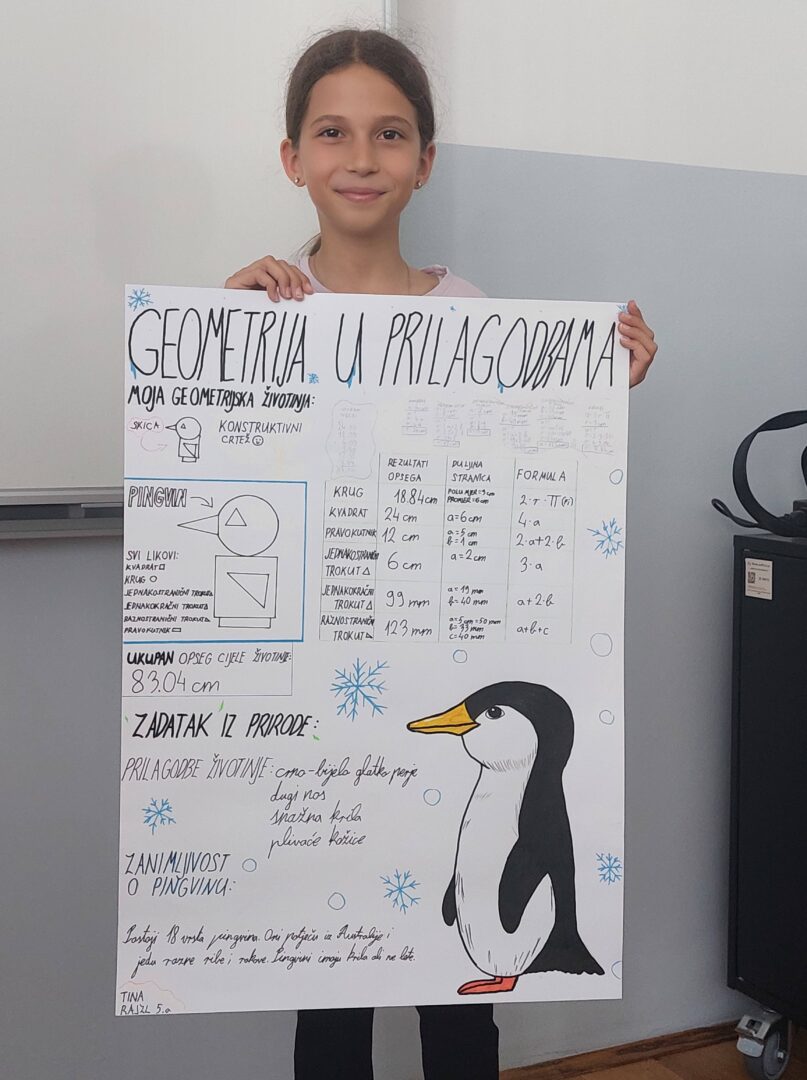 GEOMETRIJA U PRILAGODBAMA
MOJA GEOMETRIJSKA ŽIVOTINJA:
SKICA
KONSTRUKTIVNI
CRTEŽ
PINGVIN
SVI LIKOVI:
KVADRAT
KRUG
JEDNAKOSTRANIČNI TROKUT
JEDNAKOKRAČNI TROKUT
RAZNOSTRANIČNI TROKUT
PRAVOKUTNIK
REZULTATI OPSEGA DULJINA STRANICA FORMULA
KRUG 18.84 cm POLUMJER = 3 cm PROMJER = 6 cm 2·r·π (Pi)
KVADRAT 24 cm a=6 cm 4·a
PRAVOKUTNIK 12 cm a=5 cm b=1 cm 2·a+2·b
JEDNAKOSTRANIČNI TROKUT 6 cm a=2 cm 3·a
JEDNAKOKRAČNI TROKUT 99 mm a=19 mm b=40 mm a+2·b
RAZNOSTRANIČNI TROKUT 123 mm a=5 cm=50 mm b=33 mm c=40 mm a+b+c
UKUPAN OPSEG CIJELE ŽIVOTINJE:
83.04 cm
ZADATAK IZ PRIRODE:
PRILAGODBE ŽIVOTINJE: crno-bijelo glatko perje
dugi nos
snažna krila
plivaće kožice
ZANIMLJIVOST
O PINGVINU:
Postoji 18 vrsta pingvina. Oni potječu iz Australije i
jedu razne ribe i rakove. Pingvini imaju krila ali ne lete.
TINA
RAJZL 5.a